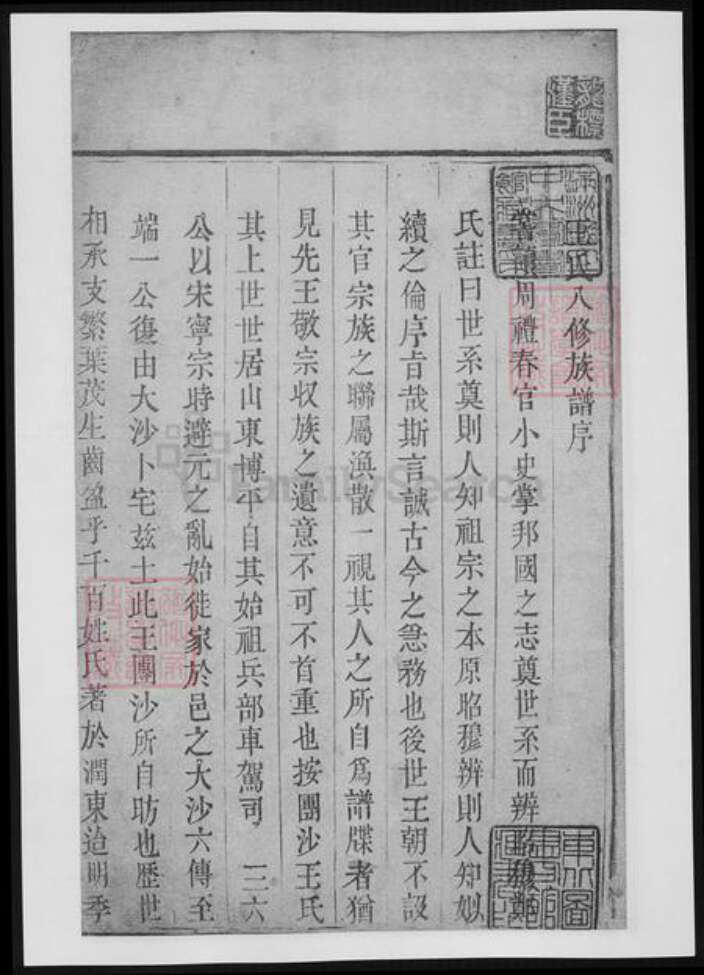 王氏八修族譜序
周禮春官小史掌邦國之志奠世系而辨昭穆鄭
氏註曰世系奠則人知祖宗之本原昭穆辨則人知妣
續之倫序旨哉斯言誠古今之急務也後世王朝不設
其官宗族之聯屬渙散一視其人之所自為譜牒者猶
見先王敬宗收族之遺意不可不首重也按團沙王氏
其上世世居山東博平自其始祖兵部車駕司 三六
公以宋寧宗時避元之亂始徙家於邑之大沙六傳至
端一公復由大沙卜宅茲土此王團沙所自昉也歷世
相承支繁葉茂生齒盈乎千百姓氏著於潤東迨明季
FamilySearch